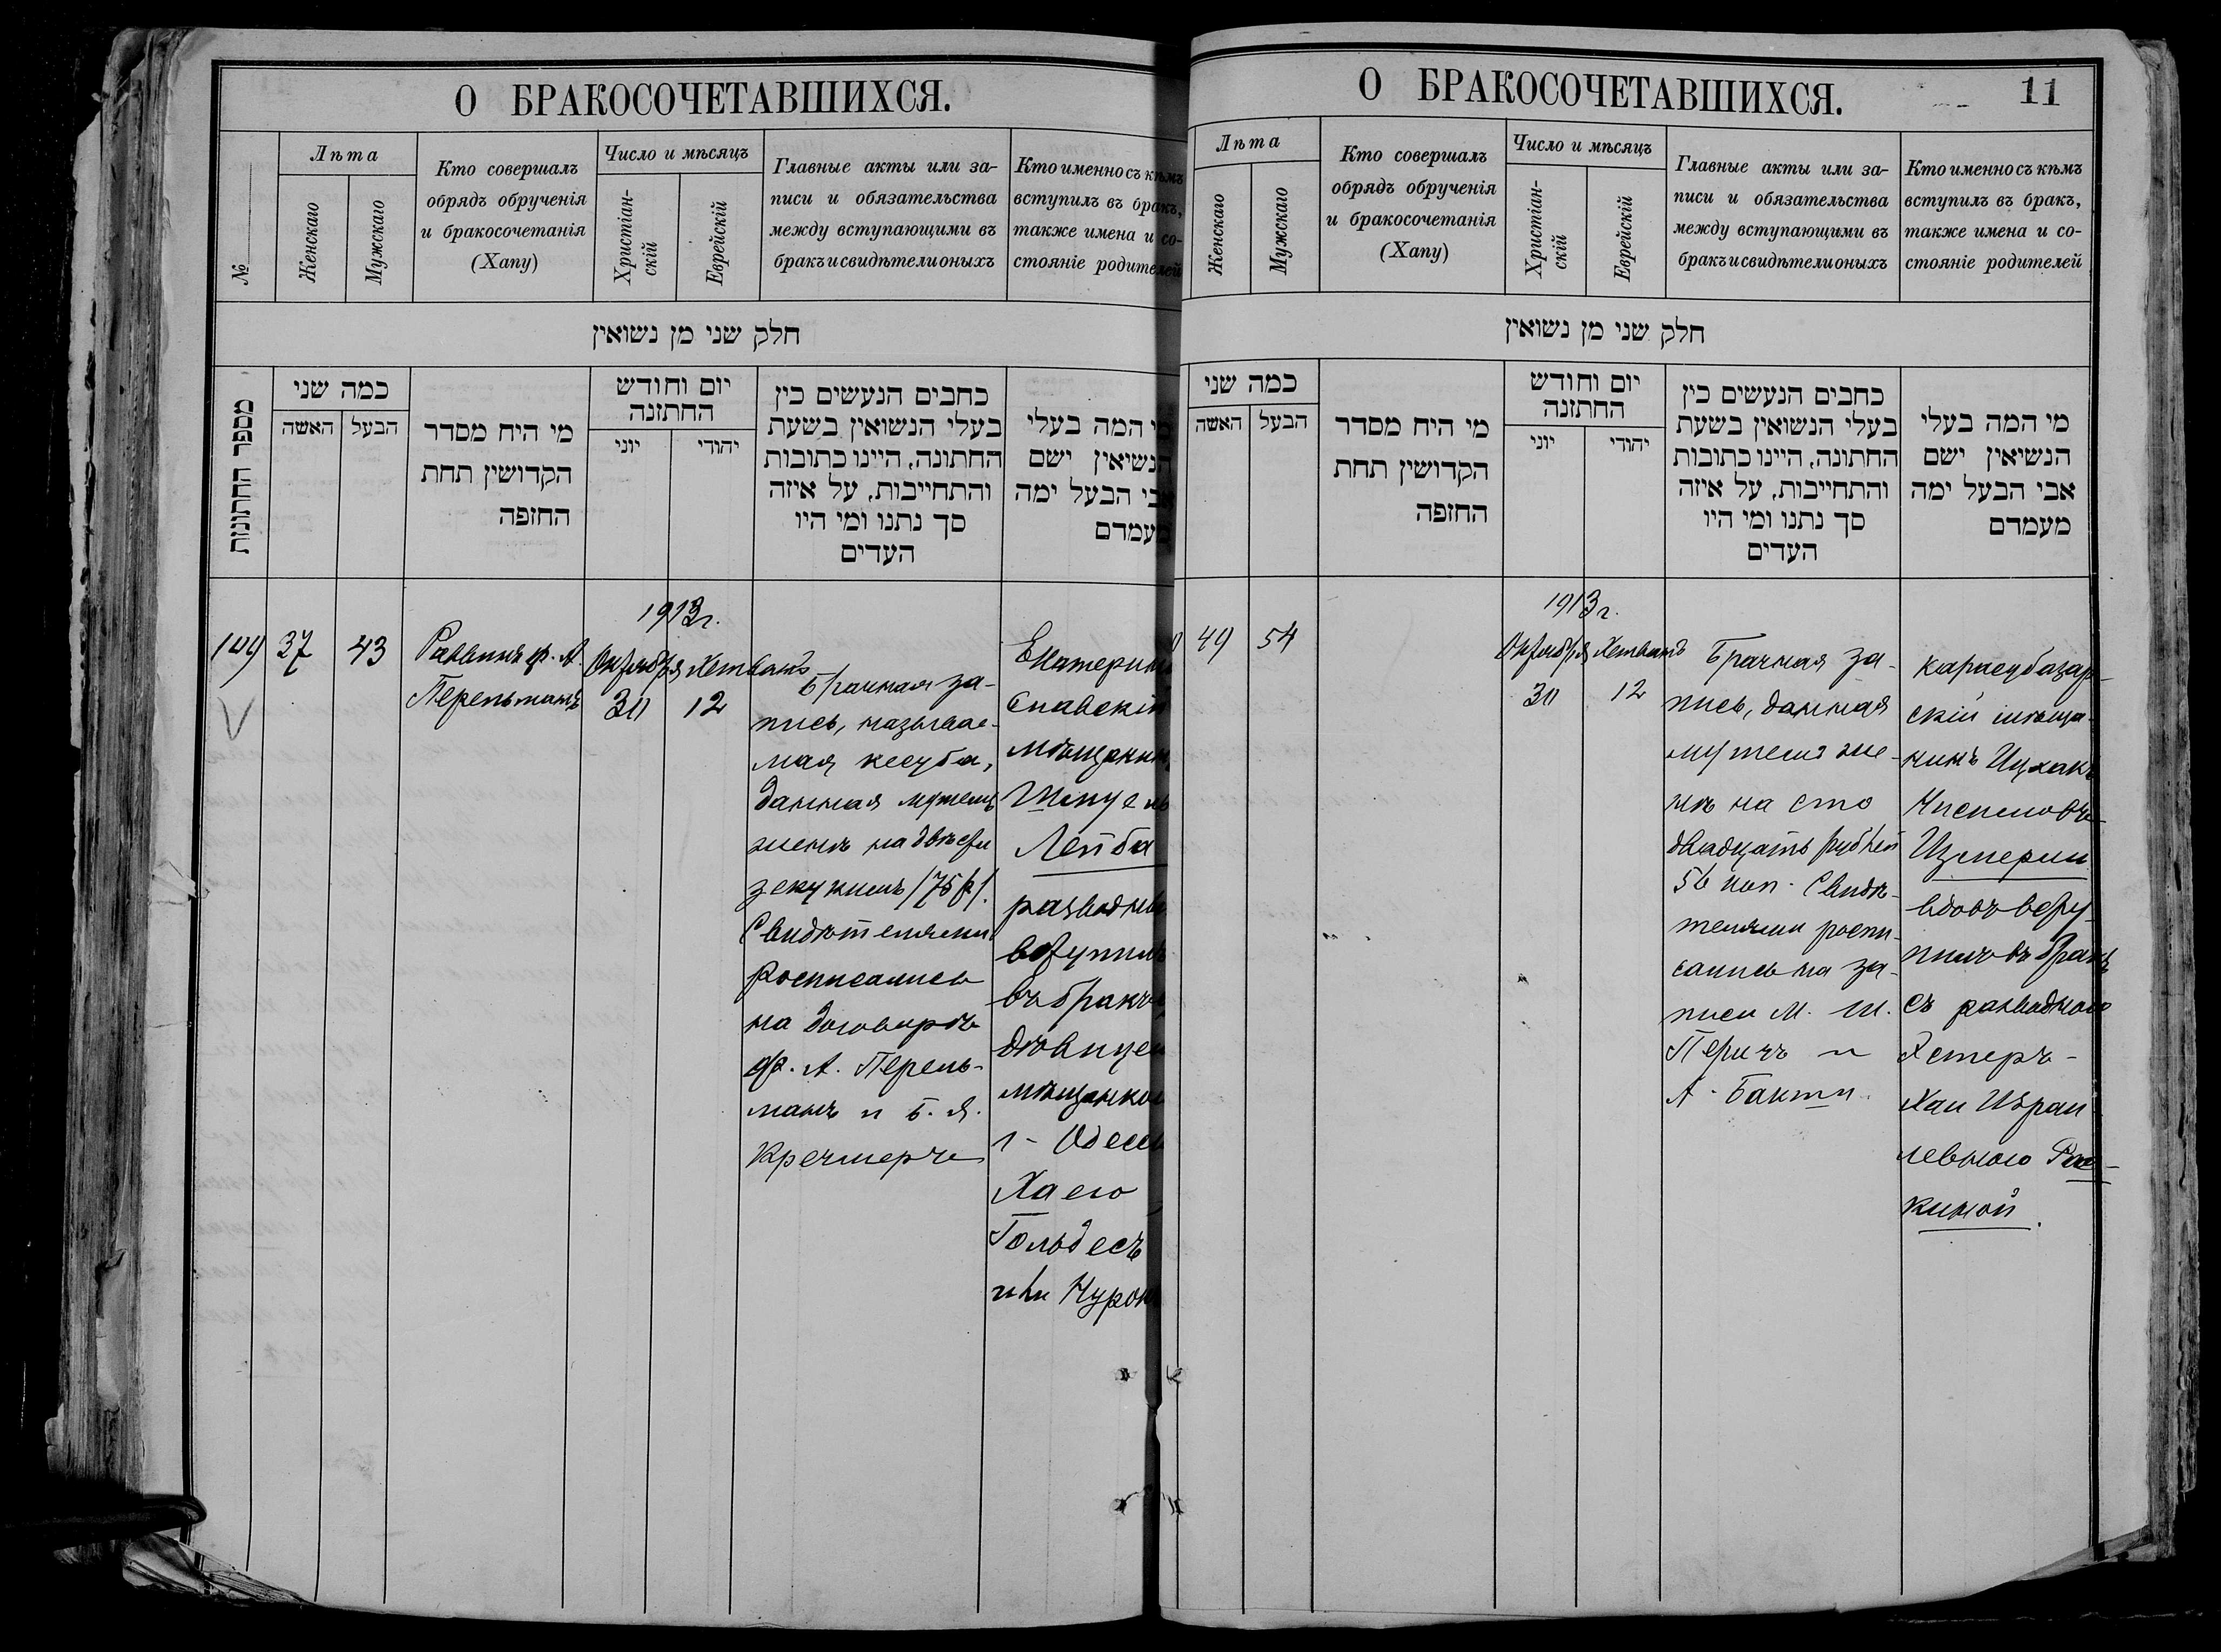 О БРАКОСОЧЕТАВШИХСЯ.
№
Лѣта
Женскаго
Мужскаго
Кто совершалъ
обрядъ обрученія
и бракосочетанія
(Хапу)
Число и мѣсяцъ
Христіан-
скій
Еврейскій
Главные акты или за-
писи и обязательства
между вступающими въ
бракъ и свидѣтели оныхъ
Кто именно съ кѣмъ
вступилъ въ бракъ,
также имена и со-
стояніе родителей
חלק שני מן נשואין
מספר החתונות
כמה שני
האשה
הבעל
מי היח מסדר
הקדושין תחת
החזפה
יום וחודש
החתזנה
יוני
יהודי
כחבים הנעשים כין
בעלי הנשואין בשעת
החתונה, היינו כתובות
והתחייבות, על איזה
סך נתנו ומי היו
העדים
מי המה בעלי
הנשיאין ישם
אבי הבעל ימה
מעמדם
149
37
43
Раввинъ ф. А.
Перельманъ
1913 г.
Октября Хешванъ
30 12
Брачная за-
пись, называе-
мая кесуба,
данная мужемъ
женѣ на двѣсти
зекукимъ /75 р/.
Свидѣтелями
росписались
на договорѣ
ф. А. Перель-
манъ и Б. Я.
Кречмеръ
Екатерино
славскій
мѣщанин
Шмуель
Лейба
разводный
вступилъ
въ бракъ
дѣвицей
мѣщанкой
г. Одессы
Хаею
Гольдесъ
или
О БРАКОСОЧЕТАВШИХСЯ.
11
Лѣта
Женскаго
Мужскаго
Кто совершалъ
обрядъ обрученія
и бракосочетанія
(Хапу)
Число и мѣсяцъ
Христіан-
скій
Еврейскій
Главные акты или за-
писи и обязательства
между вступающими въ
бракъ и свидѣтели оныхъ
Кто именно съ кѣмъ
вступилъ въ бракъ,
также имена и со-
стояніе родителей
חלק שני מן נשואין
כמה שני
האשה
הבעל
מי היח מסדר
הקדושין תחת
החזפה
יום וחודש
החתזנה
יוני
יהודי
כחבים הנעשים כין
בעלי הנשואין בשעת
החתונה, היינו כתובות
והתחייבות, על איזה
סך נתנו ומי היו
העדים
מי המה בעלי
הנשיאין ישם
אבי הבעל ימה
מעמדם
49
54
1913 г.
Октября Хешванъ
30 12
Брачная за-
пись, данная
мужемъ же-
нѣ на сто
двадцать рублей
56 коп. Свидѣ-
телями роспи-
сались на за-
писи М. Ш.
Перичъ и
А. Бакши
карасубазар-
скій мѣща-
нинъ Ицхакъ
Измерли
вдовъ всту-
пилъ въ бракъ
съ разводною
Эстеръ-
Хан Израи
левною
киной.